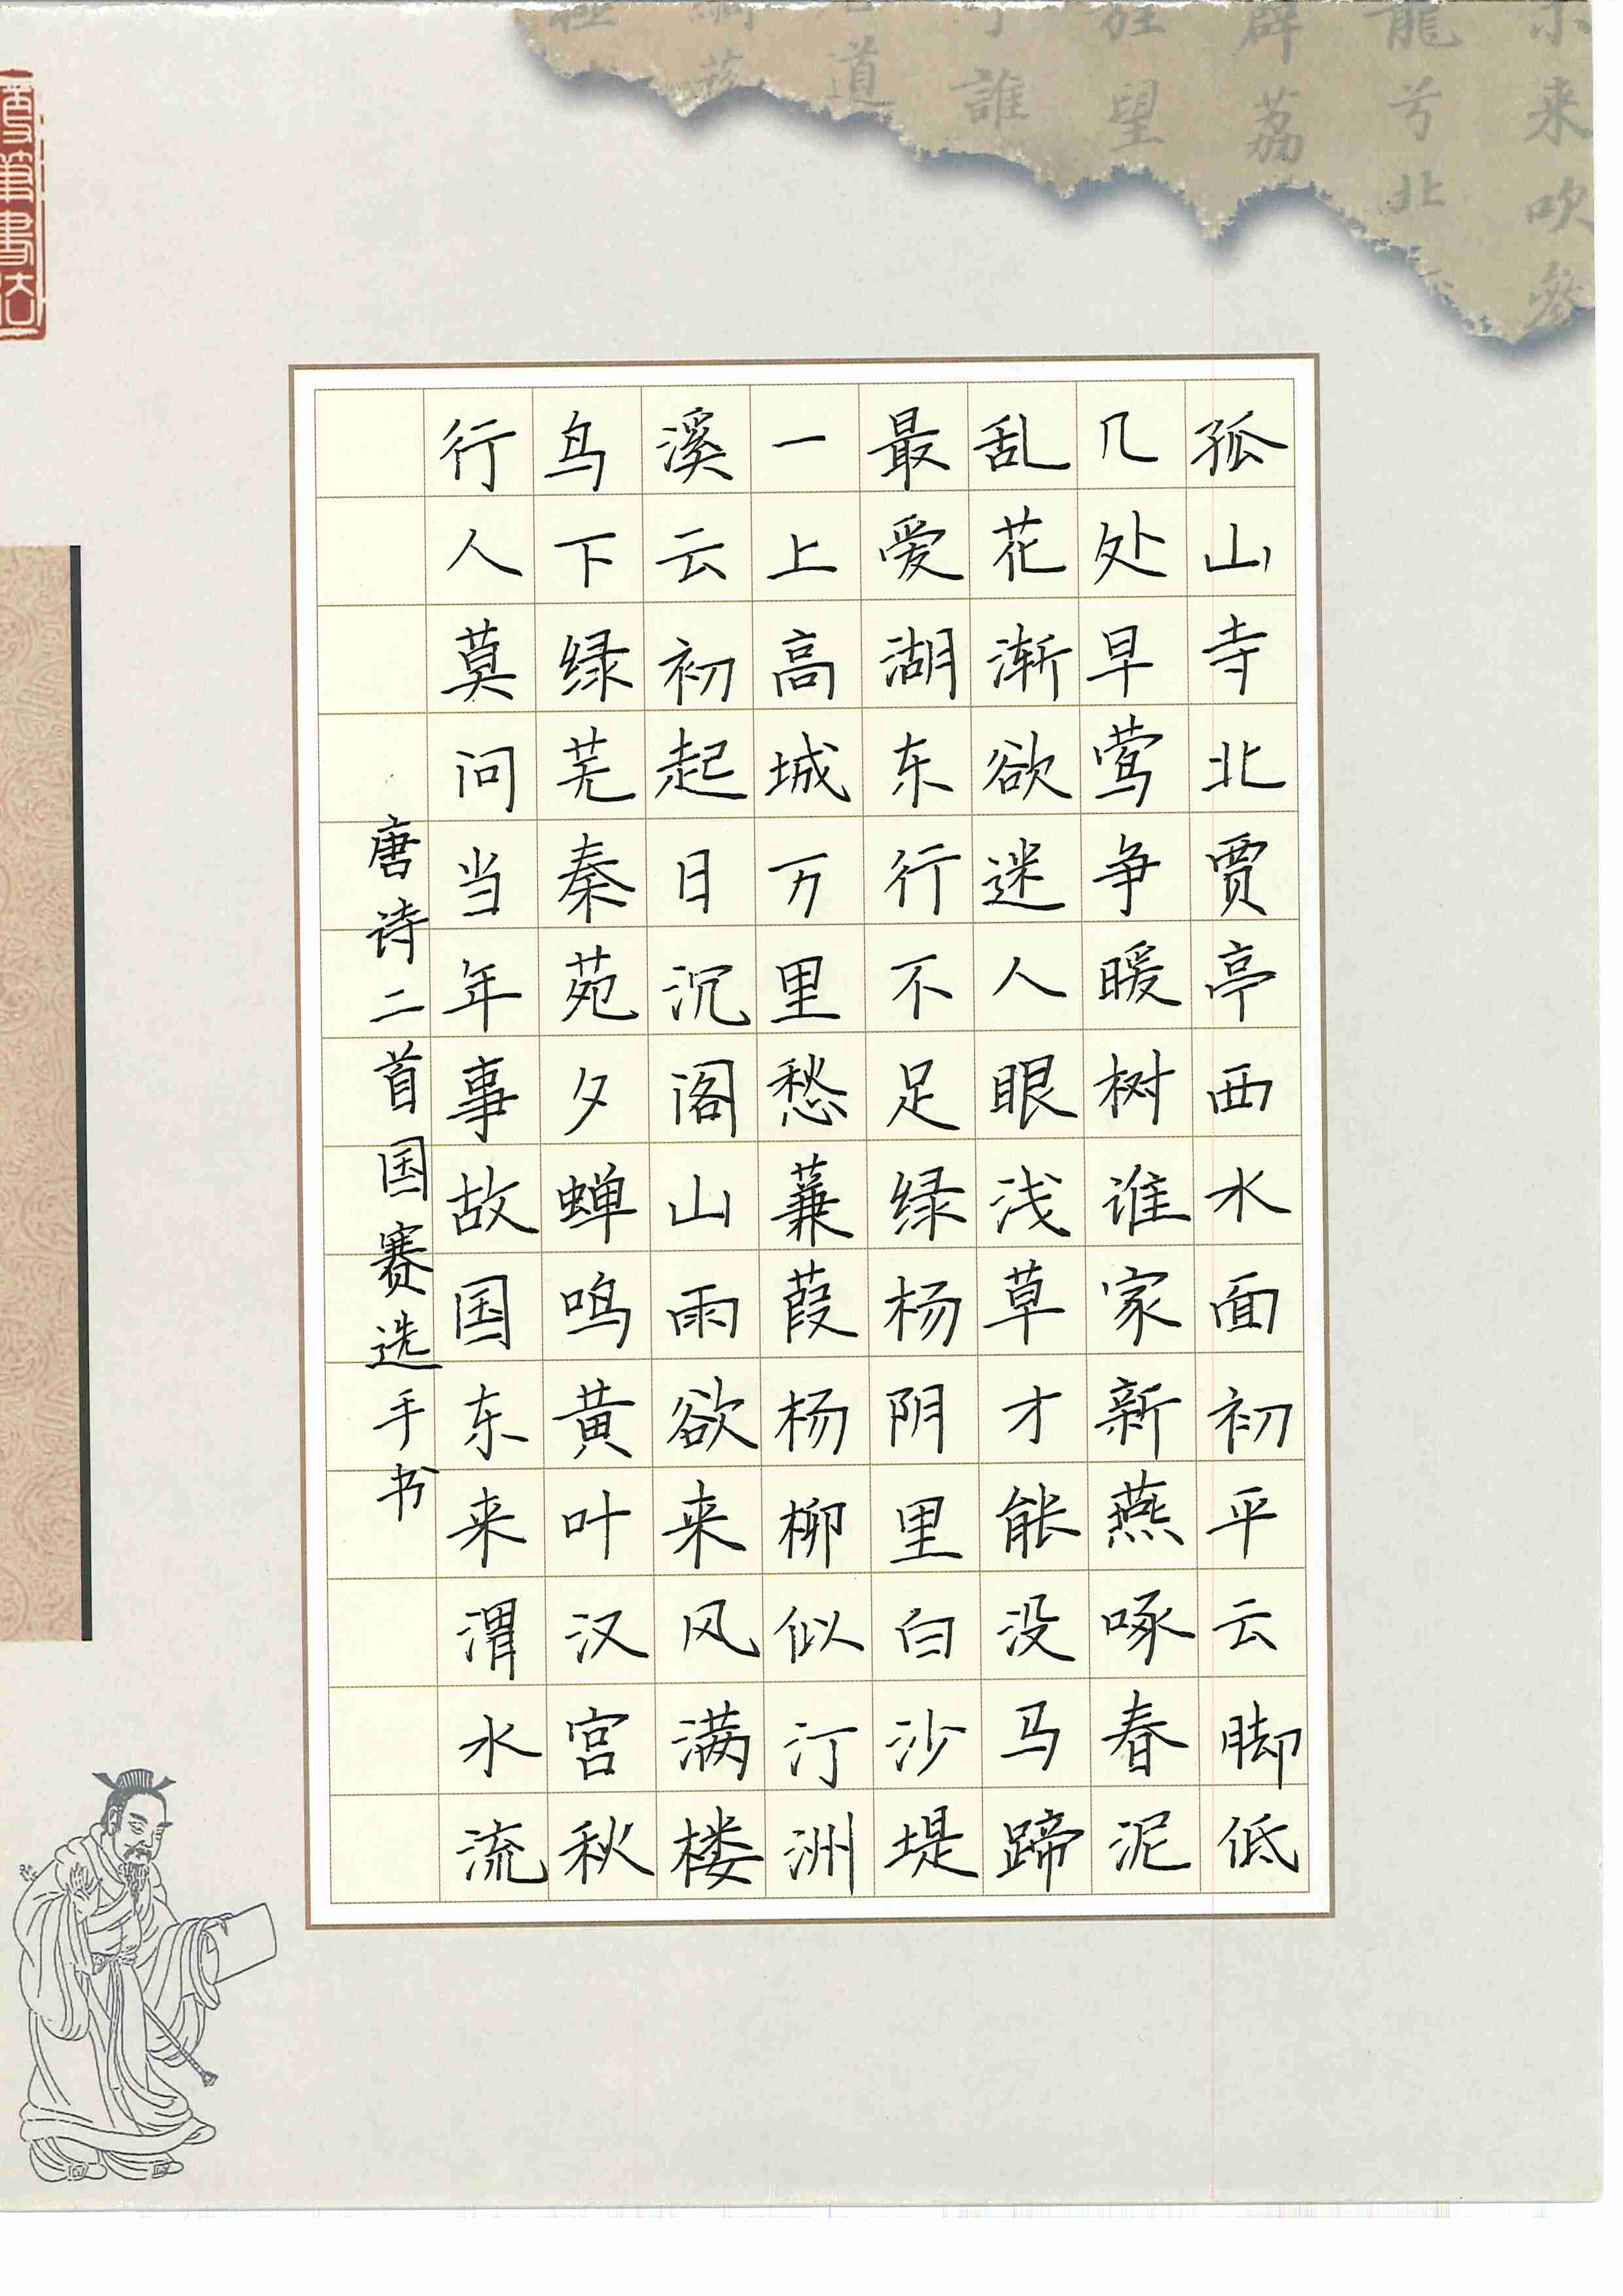 来吹
龍兮北
荔
望
誰
道
孤山寺北贾亭西水面初平云脚低
几处早莺争暖树谁家新燕啄春泥
乱花渐欲迷人眼浅草才能没马蹄
最爱湖东行不足绿杨阴里白沙堤
一上高城万里愁蒹葭杨柳似汀洲
溪云初起日沉阁山雨欲来风满楼
鸟下绿芜秦苑夕蝉鸣黄叶汉宫秋
行人莫问当年事故国东来渭水流
唐诗二首国赛选手书
筆書法